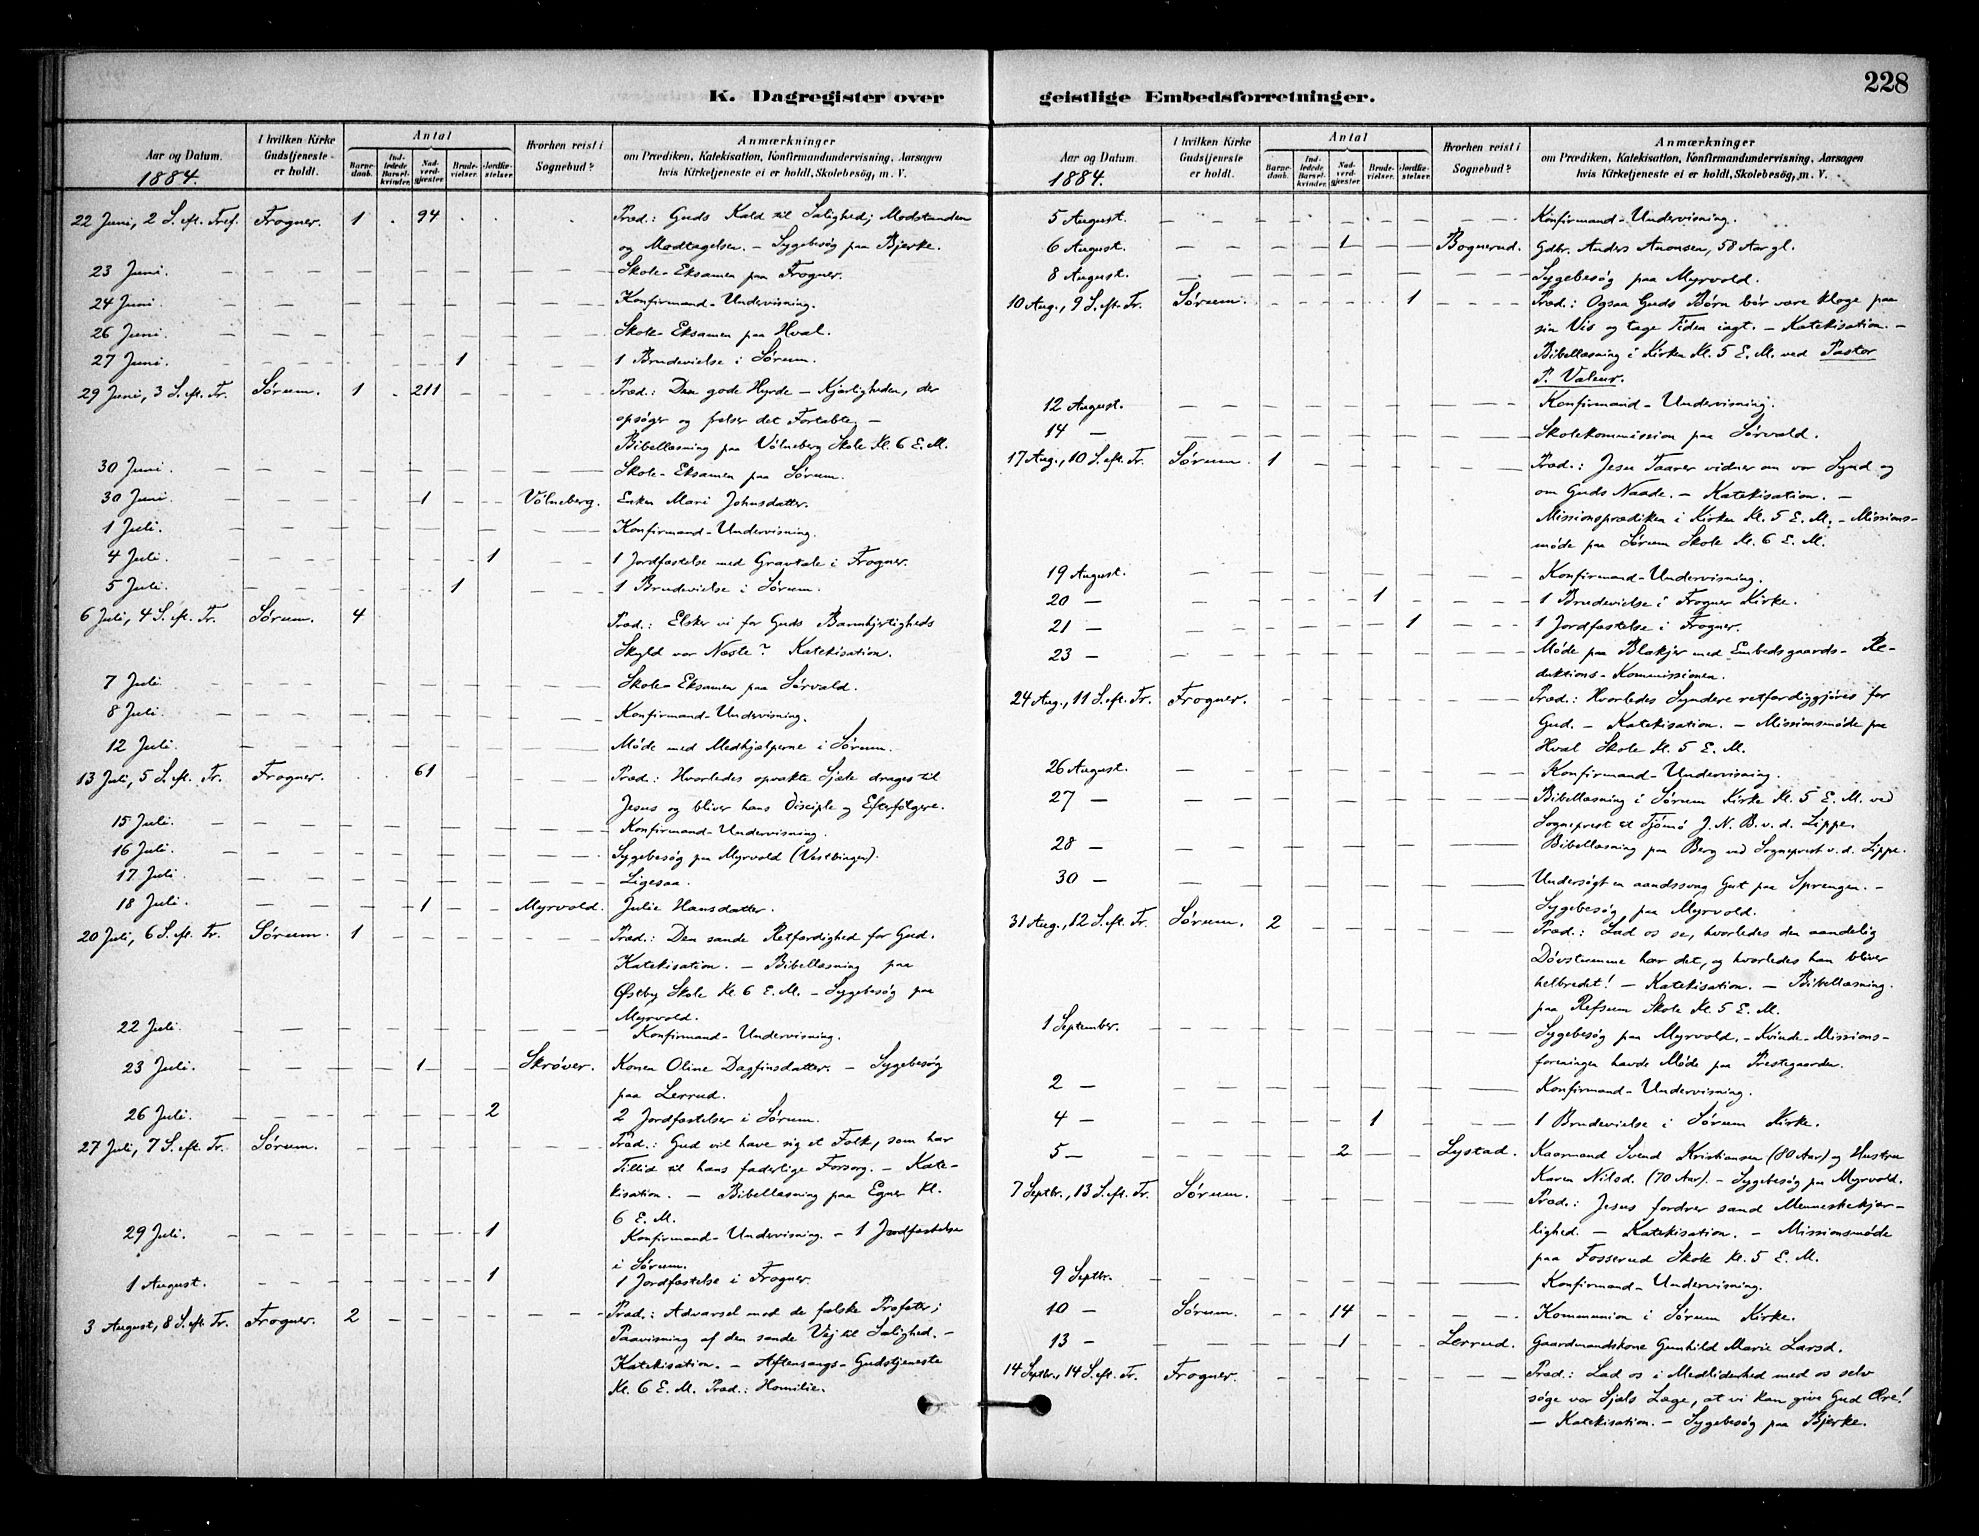 228
K. Dagregister over
Aar og Datum. 1884. | I hvilken Kirke Gudstjeneste er holdt. | Antal | Barnedaab. | Indledede Barselkvinder. | Nadverdgjæster | Brudevielser. | Jordfæstelser. | Hvorhen reist i Sognebud? | Anmærkninger om Prædiken, Katekisation, Konfirmandundervisning, Aarsagen hvis Kirketjeneste ei er holdt, Skolebesøg, m. V.
22 Juni, 2 S. eft. Tref. Frogner. 1 94 Præd.: Guds Kald til Salighed; Modstanden
og Modtagelsen. – Sygebesøg paa Bjerke.
23 Juni. Skole-Eksamen paa Frogner.
24 Juni. Konfirmand-Undervisning.
26 Juni. Skole-Eksamen paa Hval.
27 Juni. 1 1 Brudevielse i Sørum.
29 Juni, 3 S. eft. Tr. Sørum. 1 211 Præd.: Den gode Hyrde – Kjærligheden, der
opsøger og frelser det Fortabte. –
Bibellæsning paa Vølneberg Skole Kl. 6 E. M.
30 Juni. Skole-Eksamen paa Sørum.
30 Juni. 1 Vølneberg. Enken Mari Johnsdatter.
1 Juli. Konfirmand-Undervisning.
4 Juli. 1 1 Jordfæstelse med Gravtale i Frogner.
5 Juli. 1 1 Brudevielse i Sørum.
6 Juli, 4 S. eft. Tr. Sørum. 4 Præd.: Elsker vi for Guds Barmhjertigheds
Skyld vor Næste? Katekisation.
7 Juli. Skole-Eksamen paa Sørvald.
8 Juli. Konfirmand-Undervisning.
12 Juli. Møde med Medhjælperne i Sørum.
13 Juli, 5 S. eft. Tr. Frogner. 61 Præd.: Hvorledes opvakte Sjæle drages til
Jesus og bliver hans Disciple og Efterfølgere.
15 Juli. Konfirmand-Undervisning.
16 Juli. Sygebesøg paa Myrvold (Vestbingen).
17 Juli. Ligesaa.
18 Juli. 1 Myrvold. Julie Hansdatter.
20 Juli, 6 S. eft. Tr. Sørum. 1 Præd.: Den sande Retfærdighed for Gud.
Katekisation. – Bibellæsning paa
Østby Skole Kl. 6 E. M. – Sygebesøg paa
Myrvold.
22 Juli. Konfirmand-Undervisning.
23 Juli. 1 Skrøver. Konen Oline Dagfinsdatter. – Sygebesøg
paa Lerrud.
26 Juli. 2 2 Jordfæstelser i Sørum.
27 Juli, 7 S. eft. Tr. Sørum. Præd.: Gud vil have sig et Folk, som har
Tillid til hans faderlige Forsorg. – Kate-
kisation. – Bibellæsning paa Egner Kl.
6 E. M.
29 Juli. 1 Konfirmand-Undervisning. – 1 Jordfæstelse
i Sørum.
1 August. 1 1 Jordfæstelse i Frogner.
3 August, 8 S. eft. Tr. Frogner. 2 Præd.: Advarsel mod de falske Profeter;
Paavisning af den sande Vej til Salighed. –
Katekisation. – Aftensangs-Gudstjeneste
Kl. 6 E. M. Præd.: Homilie.
geistlige Embedsforretninger.
Aar og Datum 1884. | I hvilken Kirke Gudstjeneste er holdt. | Antal | Barnedaab. | Indledede Barselkvinder. | Nadverdgjæster | Brudevielser. | Jordfæstelser. | Hvorhen reist i Sognebud? | Anmærkninger om Prædiken, Katekisation, Konfirmandundervisning, Aarsagen hvis Kirketjeneste ei er holdt, Skolebesøg, m. V.
5 August. Konfirmand-Undervisning.
6 August. 1 Bognerud. Gdbr. Anders Aronsen, 58 Aar gl.
8 August. Sygebesøg paa Myrvold.
10 Aug., 9 S. eft. Tr. Sørum. 1 Præd.: Ogsaa Guds Børn bør være kloge paa
sin Vis og tage Tiden iagt. – Katekisation. –
Bibellæsning i Kirken Kl. 5 E. M. ved Pastor
P. Valeur.
12 August. Konfirmand-Undervisning.
14 – Skolekommission paa Sørvald.
17 Aug., 10 S. eft. Tr. Sørum. 1 Præd.: Jesu Taarer vidner om vor Synd og
om Guds Naade. – Katekisation. –
Missionsprædiken i Kirken Kl. 5 E. M. – Missions-
møde paa Sørum Skole Kl. 6 E. M.
19 August. Konfirmand-Undervisning.
20 – 1 1 Brudevielse i Frogner Kirke.
21 – 1 1 Jordfæstelse i Frogner.
23 – Møde paa Blakjer med Embedsgaards-Re-
duktions-Kommissionen.
24 Aug., 11 S. eft. Tr. Frogner. Præd.: Hvorledes Syndere retfærdiggjøres for
Gud. – Katekisation. – Missionsmøde paa
Hval Skole Kl. 5 E. M.
26 August. Konfirmand-Undervisning.
27 – Bibellæsning i Sørum Kirke Kl. 5 E. M. ved
Sogneprest til Tjømø J. N. B. v. d. Lippe.
28 – Bibellæsning paa Berg ved Sogneprest v. d. Lippe.
30 – Undersøgt en aandssvag Gut paa Sprengen. –
Sygebesøg paa Myrvold.
31 Aug., 12 S. eft. Tr. Sørum. 2 Præd.: Lad os se, hvorledes den aandelig
Døvstumme har det, og hvorledes han bliver
helbredet! – Katekisation. – Bibellæsning.
paa Refsum Skole Kl. 5 E. M.
1 September. Sygebesøg paa Myrvold. – Kvinde-Missions-
foreningen havde Møde paa Prestegaarden.
2 – Konfirmand-Undervisning.
4 – 1 1 Brudevielse i Sørum Kirke.
5 – 2 Lystad. Kaarmand Svend Kristiansen (80 Aar) og Hustru
Karen Nilsd. (70 Aar). – Sygebesøg paa Myrvold.
7 Septbr., 13 S. eft. Tr. Sørum. Præd.: Jesus fordrer sand Menneskekjær-
lighed. – Katekisation. – Missionsmøde
paa Fosserud Skole Kl. 5 E. M.
9 Septbr. Konfirmand-Undervisning.
10 – Sørum. 14 Kommunion i Sørum Kirke.
13 – 1 Lerrud. Gaardmandskone Gunhild Marie Larsd.
14 Septbr., 14 S. eft. Tr. Frogner. Præd.: Lad os i Medlidenhed med os selv
søge vor Sjæls Læge, at vi kan give Gud Ære!
– Katekisation. – Sygebesøg paa Bjerke.